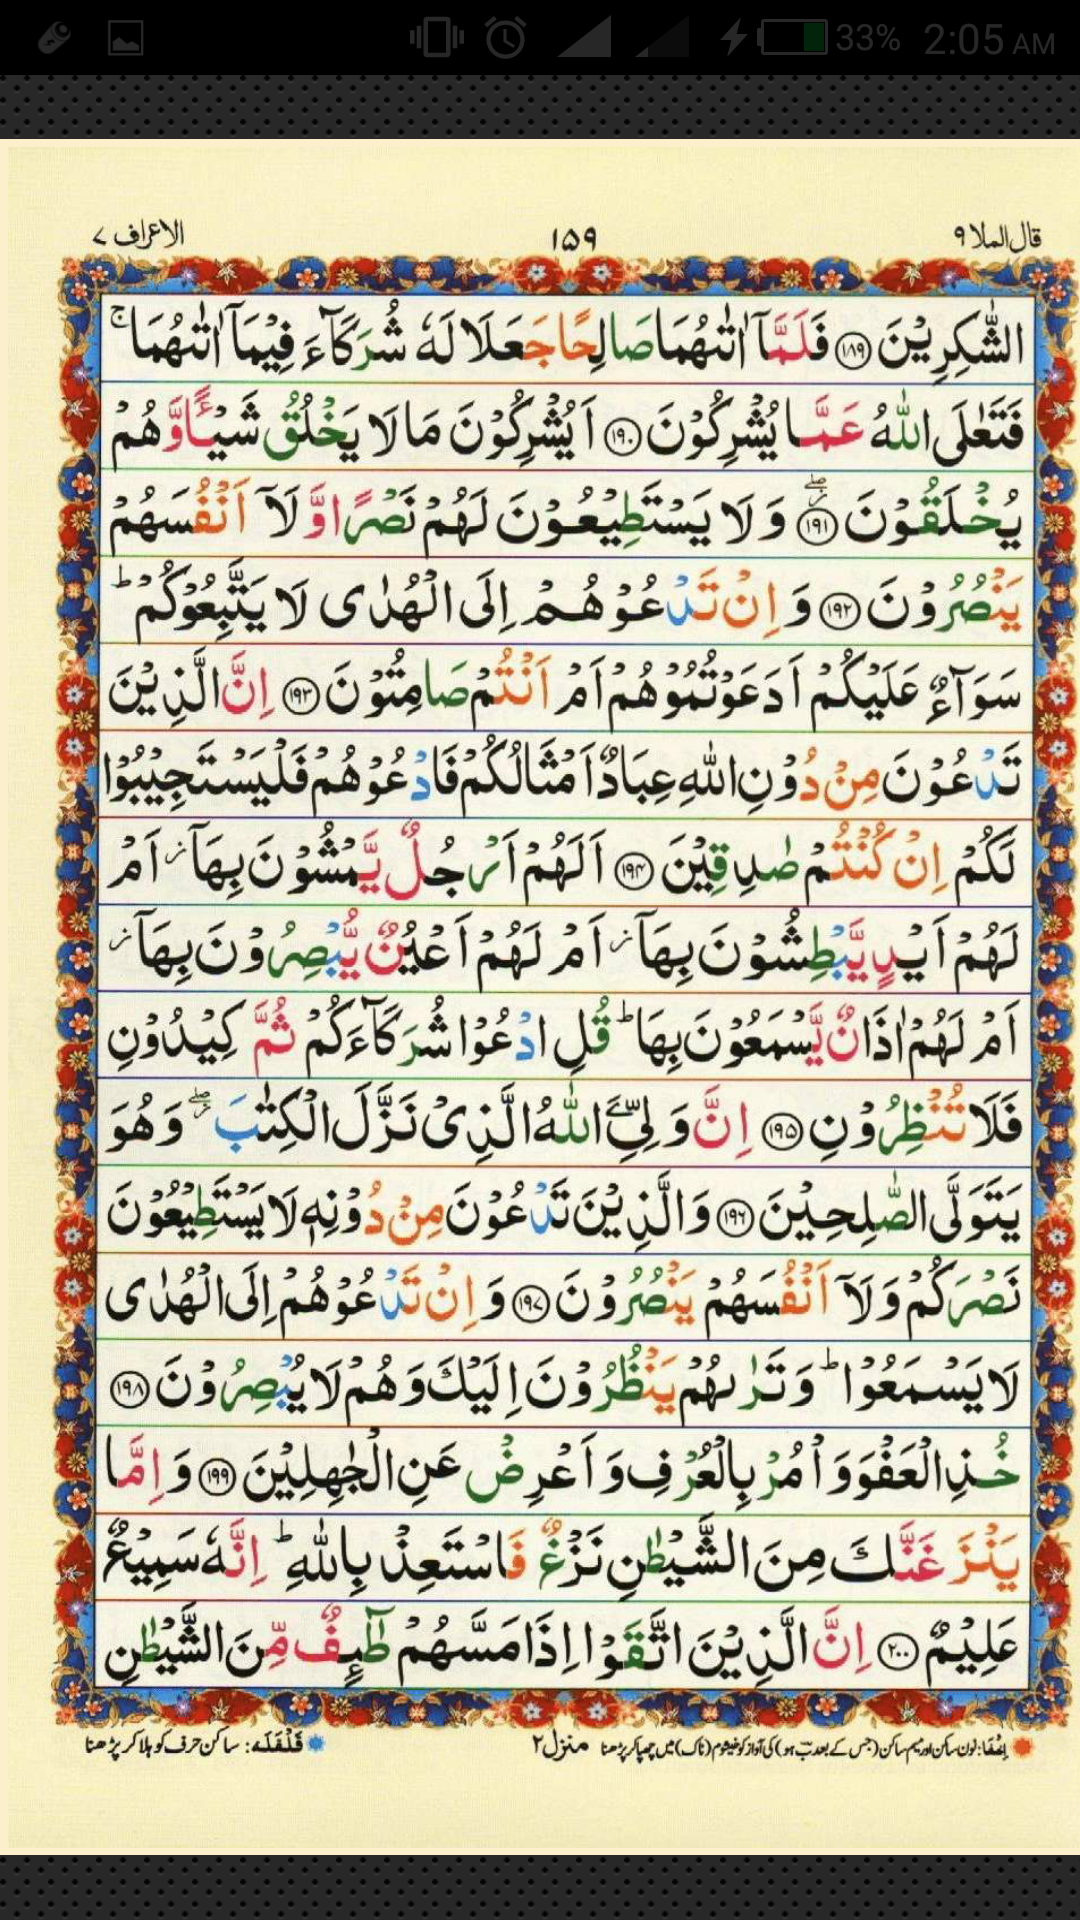 33% 2:05 AM
قال الملا ۹ ۱۵۹ الاعراف ۷
الشّٰكِرِيْنَ ﴿۱۸۹﴾ فَلَمَّاۤ اٰتٰىهُمَا صَالِحًا جَعَلَا لَهٗ شُرَكَآءَ فِيْمَاۤ اٰتٰىهُمَا ۚ
فَتَعٰلَى اللّٰهُ عَمَّا يُشْرِكُوْنَ ﴿۱۹۰﴾ اَيُشْرِكُوْنَ مَا لَا يَخْلُقُ شَيْـًٔا وَّهُمْ
يُخْلَقُوْنَ ﴿۱۹۱﴾ۖ وَلَا يَسْتَطِيْعُوْنَ لَهُمْ نَصْرًا وَّلَاۤ اَنْفُسَهُمْ
يَنْصُرُوْنَ ﴿۱۹۲﴾ وَاِنْ تَدْعُوْهُمْ اِلَى الْهُدٰى لَا يَتَّبِعُوْكُمْ ؕ
سَوَآءٌ عَلَيْكُمْ اَدَعَوْتُمُوْهُمْ اَمْ اَنْتُمْ صَامِتُوْنَ ﴿۱۹۳﴾ اِنَّ الَّذِيْنَ
تَدْعُوْنَ مِنْ دُوْنِ اللّٰهِ عِبَادٌ اَمْثَالُكُمْ فَادْعُوْهُمْ فَلْيَسْتَجِيْبُوْا
لَكُمْ اِنْ كُنْتُمْ صٰدِقِيْنَ ﴿۱۹۴﴾ اَلَهُمْ اَرْجُلٌ يَّمْشُوْنَ بِهَاۤ ز اَمْ
لَهُمْ اَيْدٍ يَّبْطِشُوْنَ بِهَاۤ ز اَمْ لَهُمْ اَعْيُنٌ يُّبْصِرُوْنَ بِهَاۤ ز
اَمْ لَهُمْ اٰذَانٌ يَّسْمَعُوْنَ بِهَا ؕ قُلِ ادْعُوْا شُرَكَآءَكُمْ ثُمَّ كِيْدُوْنِ
فَلَا تُنْظِرُوْنِ ﴿۱۹۵﴾ اِنَّ وَلِيِّۦَ اللّٰهُ الَّذِيْ نَزَّلَ الْكِتٰبَ ۖ وَهُوَ
يَتَوَلَّى الصّٰلِحِيْنَ ﴿۱۹۶﴾ وَالَّذِيْنَ تَدْعُوْنَ مِنْ دُوْنِهٖ لَا يَسْتَطِيْعُوْنَ
نَصْرَكُمْ وَلَاۤ اَنْفُسَهُمْ يَنْصُرُوْنَ ﴿۱۹۷﴾ وَاِنْ تَدْعُوْهُمْ اِلَى الْهُدٰى
لَا يَسْمَعُوْا ؕ وَتَرٰىهُمْ يَنْظُرُوْنَ اِلَيْكَ وَهُمْ لَا يُبْصِرُوْنَ ﴿۱۹۸﴾
خُذِ الْعَفْوَ وَاْمُرْ بِالْعُرْفِ وَاَعْرِضْ عَنِ الْجٰهِلِيْنَ ﴿۱۹۹﴾ وَاِمَّا
يَنْزَغَنَّكَ مِنَ الشَّيْطٰنِ نَزْغٌ فَاسْتَعِذْ بِاللّٰهِ ؕ اِنَّهٗ سَمِيْعٌ
عَلِيْمٌ ﴿۲۰۰﴾ اِنَّ الَّذِيْنَ اتَّقَوْا اِذَا مَسَّهُمْ طٰٓىِٕفٌ مِّنَ الشَّيْطٰنِ
اِخْفَا: نون ساکن اور میم ساکن (جس کے بعد ب ہو) کی آواز کو خیشوم (ناک) میں چھپا کر پڑھنا منزل ۲ قَلْقَلَہ: ساکن حرف کو ہلا کر پڑھنا